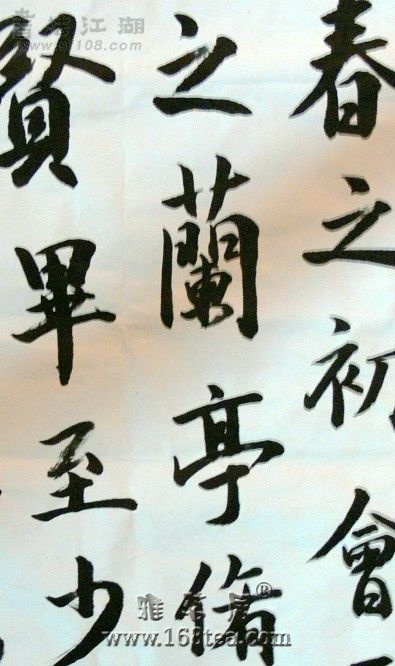 春之初會
之蘭亭脩
賢畢至少
江湖
sf108.com
www.168tea.com